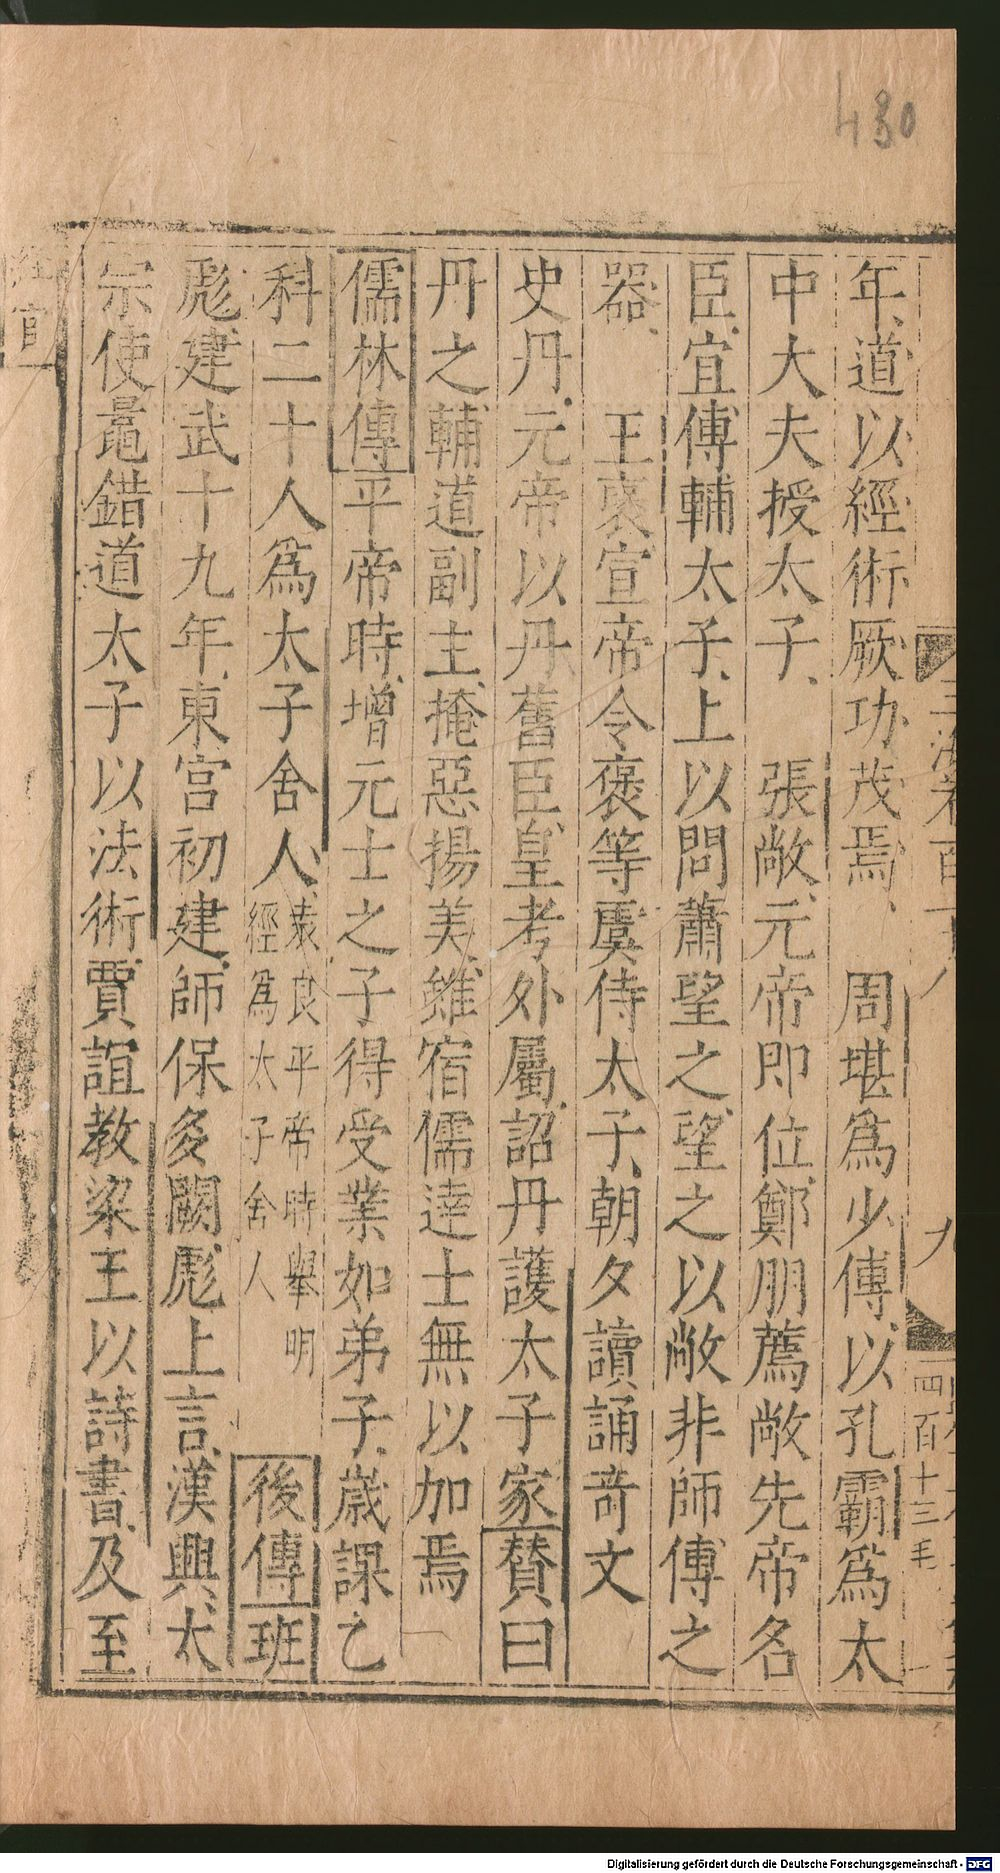 430
年道以經術厥功茂焉　周堪爲少傅以孔霸爲太
中大夫授太子　張敞元帝即位鄭朋薦敞先帝名
臣宜傅輔太子上以問蕭望之望之以敞非師傅之
器　王襃宣帝令襃等虞侍太子朝夕讀誦奇文
史丹元帝以丹舊臣皇考外屬詔丹護太子家贊曰
丹之輔道副主掩惡揚美雖宿儒達士無以加焉
儒林傳平帝時增元士之子得受業如弟子歳課乙
科二十人爲太子舍人袁良平帝時舉明經爲太子舍人　後傳班
彪建武十九年東宮初建師保多闕彪上言漢興太
宗使鼂錯道太子以法術賈誼教梁王以詩書及至
九
四百十三毛
Digitalisierung gefördert durch die Deutsche Forschungsgemeinschaft - DFG